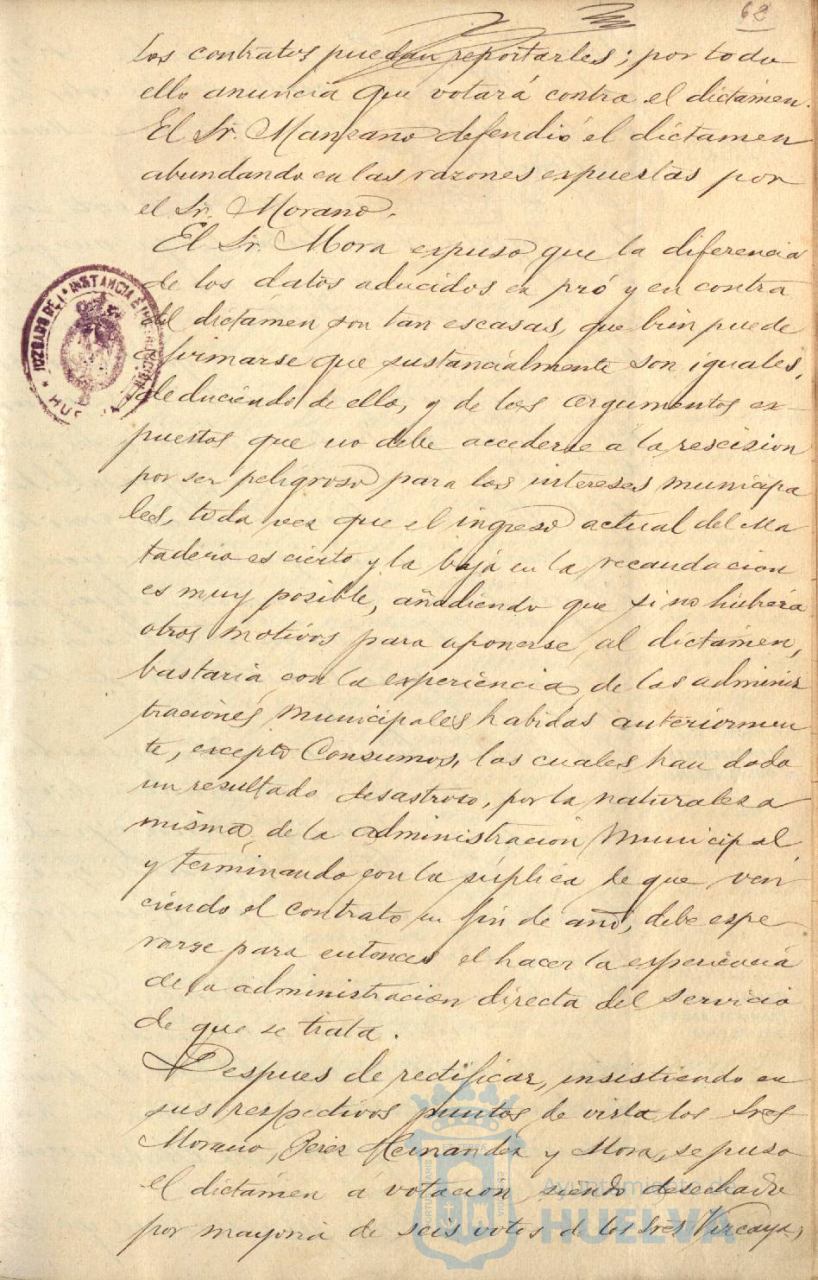 62
los contratos puedan reportarles; por todo
ello anuncia que votará contra el dictámen.
El Sr. Manzano defendió el dictamen
abundando en las razones expuestas por
el Sr. Morano.
El Sr. Mora expuso que la diferencia
de los datos aducidos en pró y en contra
del dictámen son tan escasas, que bien puede
afirmarse que sustancialmente son iguales,
deduciendo de ello, y de los argumentos ex-
puestos que no debe accederse á la rescision
por ser peligroso para los intereses municipa
les, toda vez que el ingreso actual del Ma
tadero es cierto y la baja en la recaudacion
es muy posible, añadiendo que si no hubiera
otros motivos para oponerse al dictámen,
bastaria con la experiencia de las adminis
traciones municipales habidas anteriormen
te, excepto Consumos, las cuales han dado
un resultado desastroso, por la naturaleza
misma de la administracion Municipal
y terminando con la súplica de que ven
ciendo el contrato en fin de año, debe espe-
rarse para entonces el hacer la experiencia
de la administracion directa del servicio
de que se trata.
Despues de rectificar, insistiendo en
sus respectivos puntos de vista, los Sres
Morano, Perez Hernandez y Mora, se puso
el dictámen á votacion, siendo desechado
por mayoria de seis votos de los Sres Vizcaya,
JUZGADO DE 1ª INSTANCIA E
HUELVA
Ayuntamiento de
HUELVA